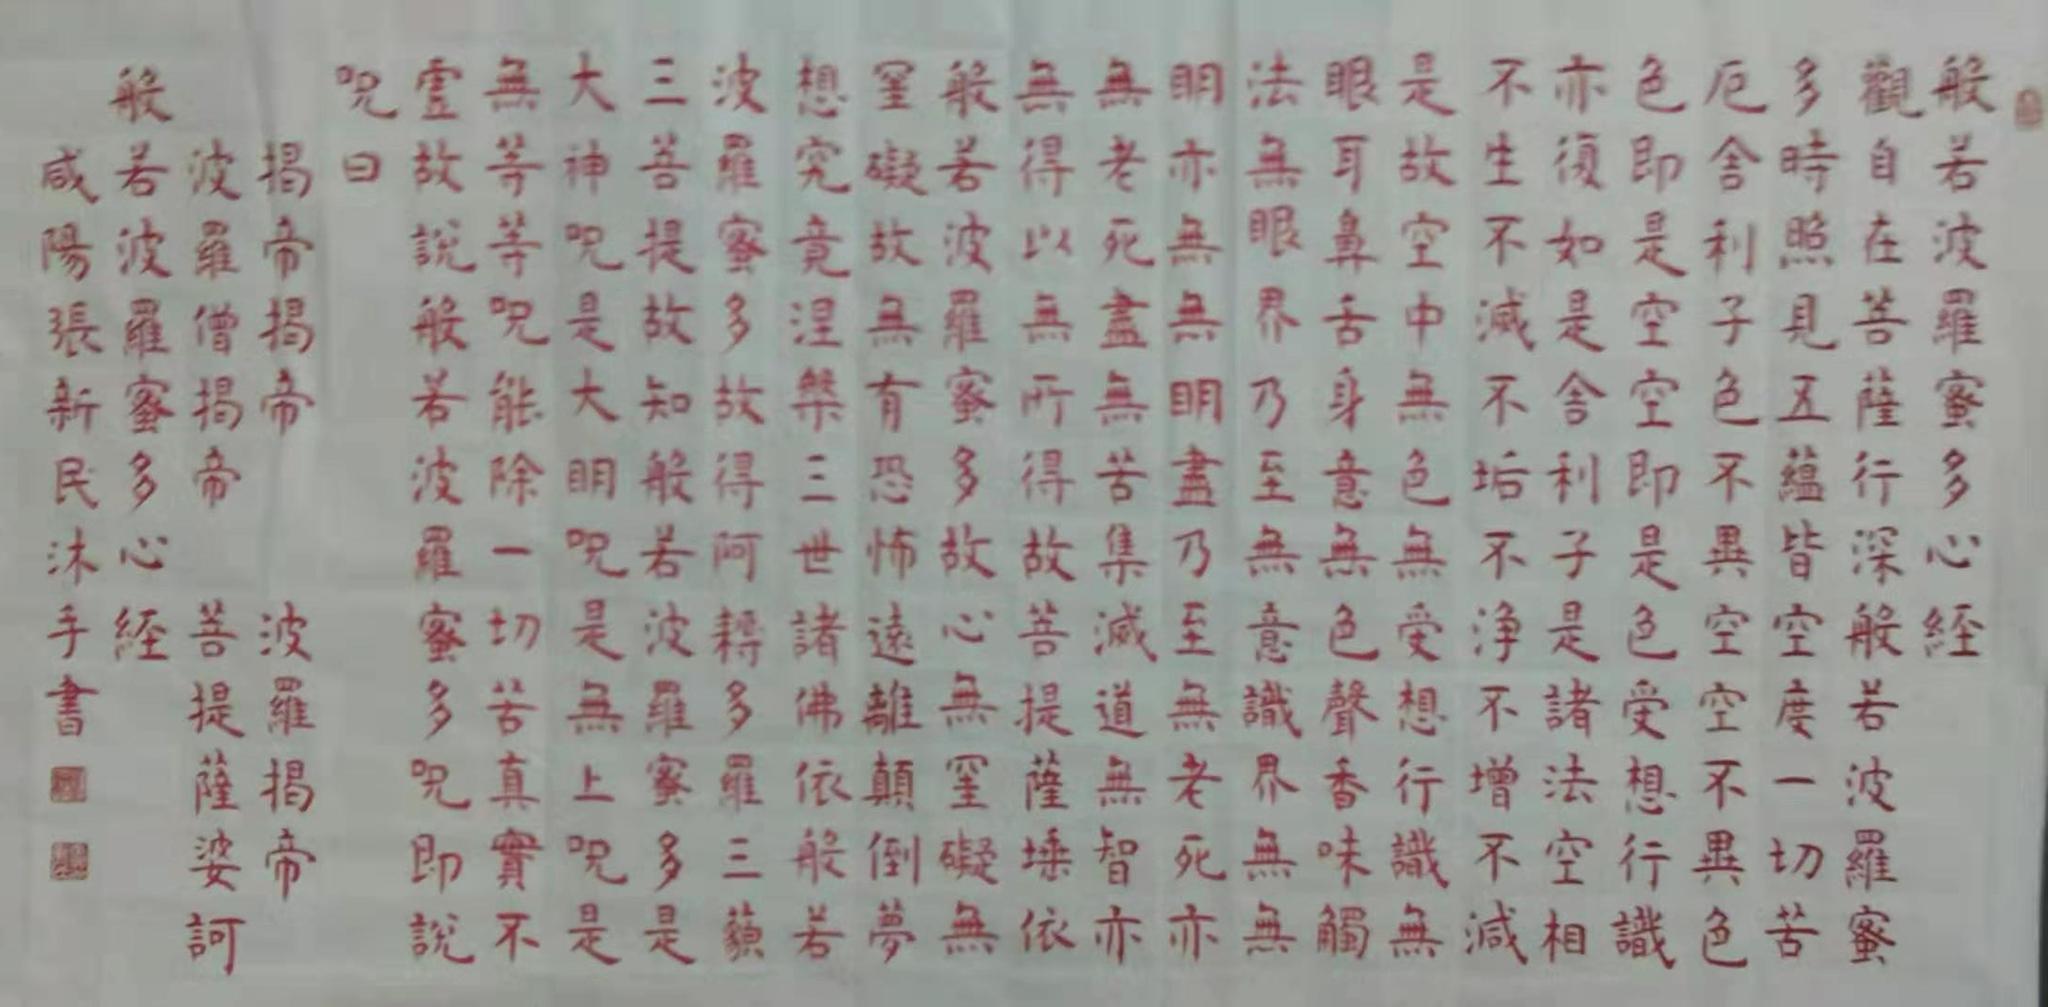 般若波羅蜜多心經
觀自在菩薩行深般若波羅蜜
多時照見五蘊皆空度一切苦
厄舍利子色不異空空不異色
色即是空空即是色受想行識
亦復如是舍利子是諸法空相
不生不滅不垢不淨不增不減
是故空中無色無受想行識無
眼耳鼻舌身意無色聲香味觸
法無眼界乃至無意識界無無
明亦無無明盡乃至無老死亦
無老死盡無苦集滅道無智亦
無得以無所得故菩提薩埵依
般若波羅蜜多故心無罣礙無
罣礙故無有恐怖遠離顛倒夢
想究竟涅槃三世諸佛依般若
波羅蜜多故得阿耨多羅三藐
三菩提故知般若波羅蜜多是
大神呪是大明呪是無上呪是
無等等呪能除一切苦真實不
虛故說般若波羅蜜多呪即說
呪曰
揭帝揭帝 波羅揭帝
波羅僧揭帝 菩提薩婆訶
般若波羅蜜多心經
咸陽張新民沐手書